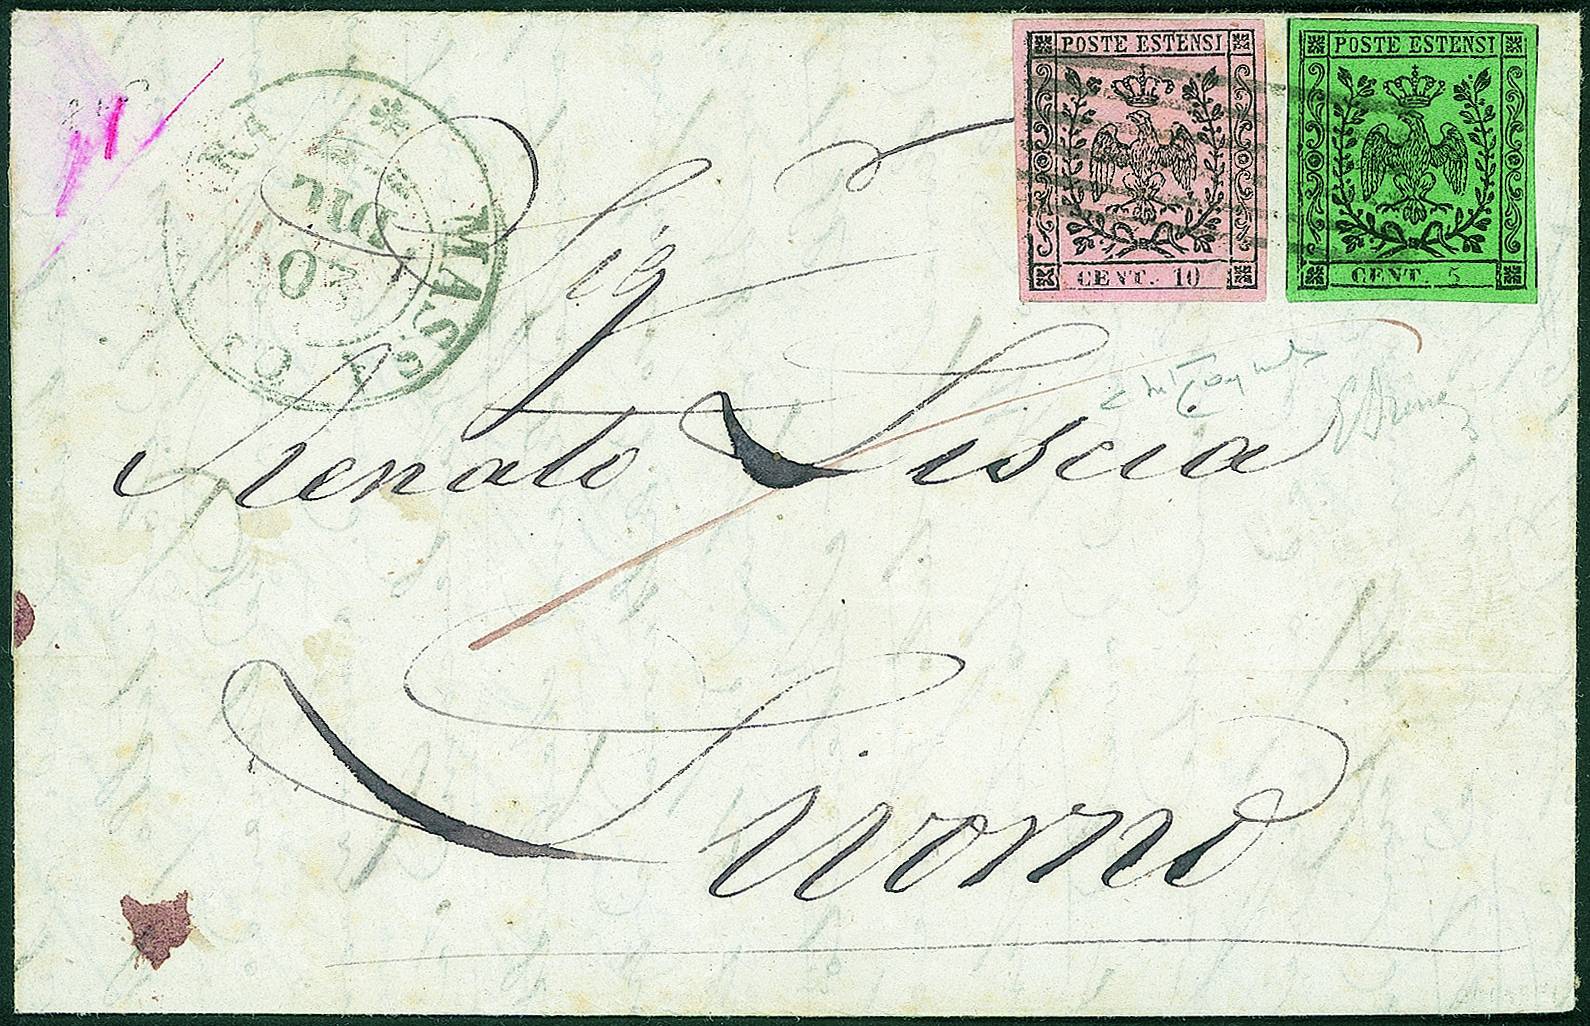 POSTE ESTENSI
CENT. 10
POSTE ESTENSI
CENT. 5
MASSA
DIC
20
Sig.r
Renato Liscia
Livorno